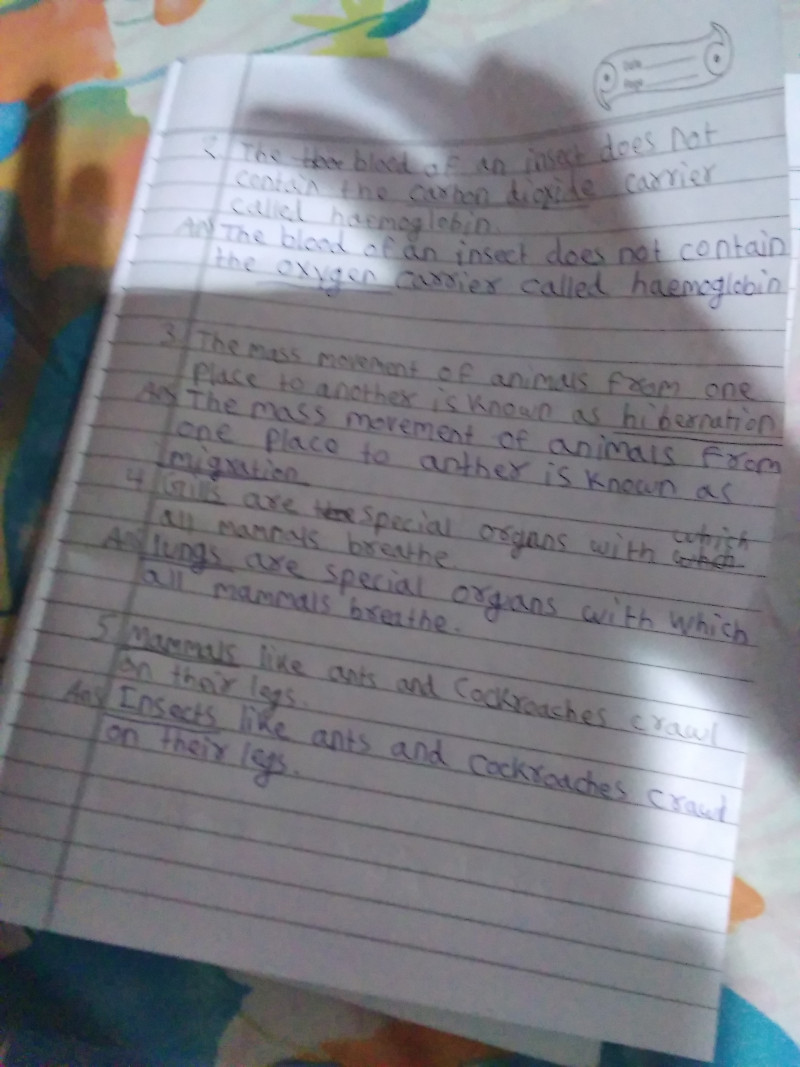 Date
Page
2 The blood of an insect does not
contain the carbon dioxide carrier
called haemoglobin.
Ans The blood of an insect does not contain
the oxygen carrier called haemoglobin
3 The mass movement of animals from one
place to another is known as hibernation
Ans The mass movement of animals from
one place to anther is known as
migration
4 Gills are special organs with which
all mammals breathe.
Ans lungs are special organs with which
all mammals breathe.
5 Mammals like ants and Cockroaches crawl
on their legs.
Ans Insects like ants and cockroaches crawl
on their legs.